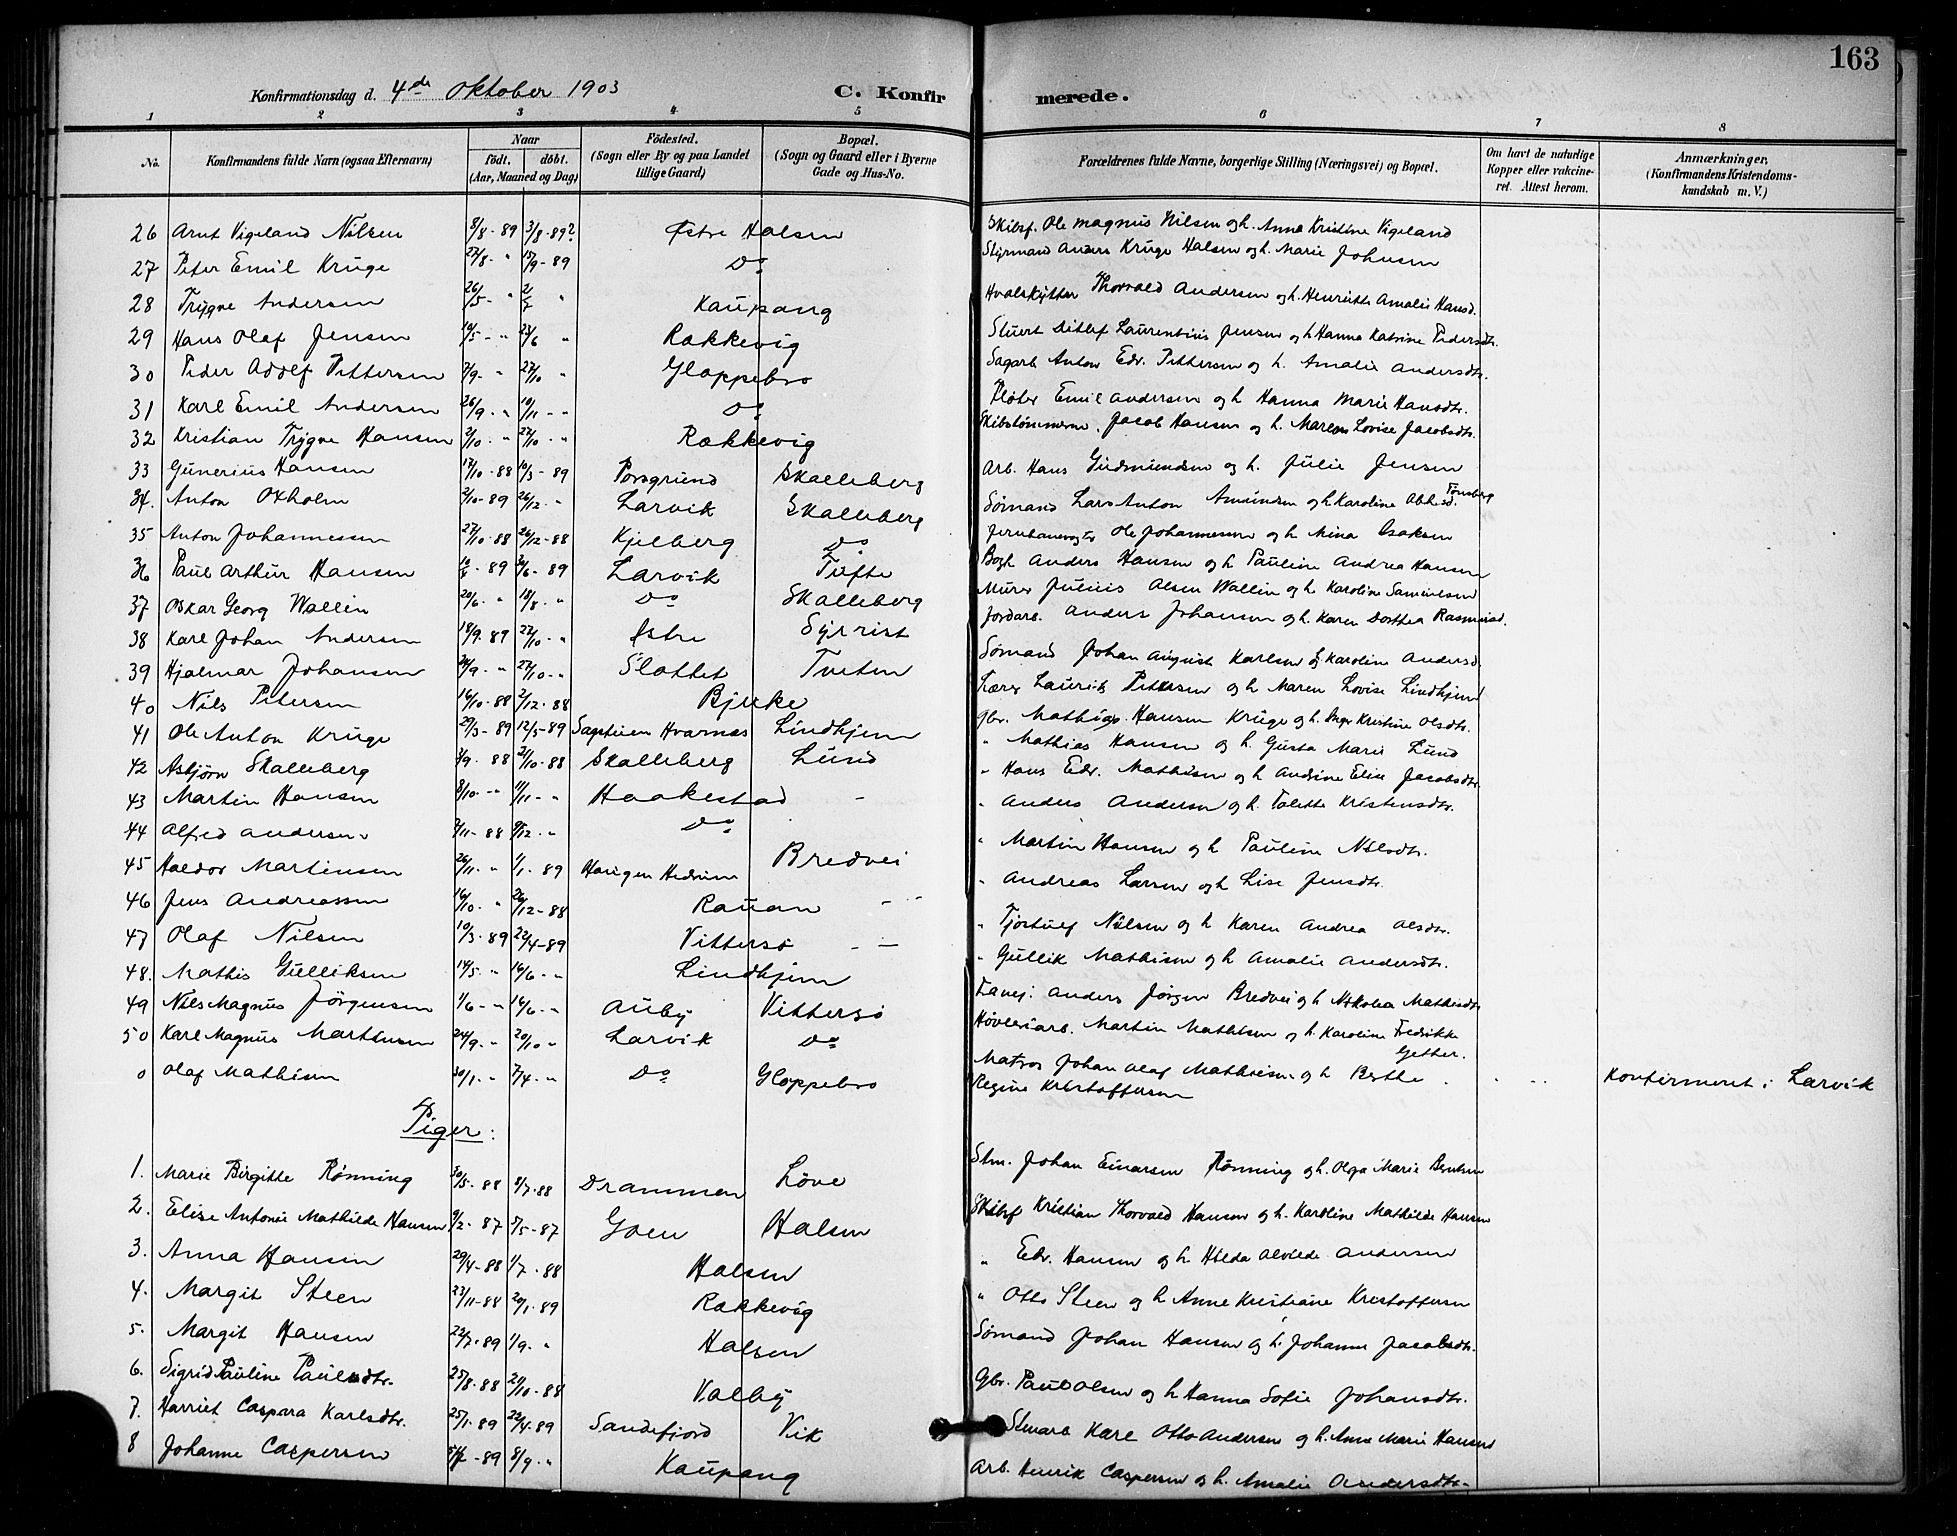 163
Konfirmationsdag d. 4de Oktober 1903 C. Konfirmerede.
1 2 3 4 5 6 7 8
No. Konfirmandens fulde Navn (ogsaa Efternavn) Naar födt. döbt. (Aar, Maaned og Dag) Födested. (Sogn eller By og paa Landet tillige Gaard) Bopæl. (Sogn og Gaard eller i Byerne Gade og Hus-No. Forældrenes fulde Navne, borgerlige Stilling (Næringsvei) og Bopæl. Om havt de naturlige Kopper eller vakcineret. Attest herom. Anmærkninger. (Konfirmandens Kristendomskundskab m. V.)
26 Arnt Vigeland Nilsen 8/8-89 3/8-89? Østre Halsen Skibsf. Ole Magnus Nilsen og h. Anna Kristine Vigeland
27 Peter Emil Kruge 22/8-" 15/9-89 Do Styrmand Anders Kruge Halsen og h. Marie Johnsen
28 Trygve Andersen 26/5-" 2/7 " Kaupang Hvalskytter Thorvald Andersen og h. Henriette Amalie Hansd.
29 Hans Olaf Jensen 10/5-" 23/6 " Rækkevig Stuert Ditlef Laurentius Jensen og h Hanna Katrine Pedersdtr.
30 Peder Adolf Pettersen 7/9-" 27/10 " Gloppebro Sagarb Anton Edv. Pettersen og h. Amalie Andersdtr.
31 Karl Emil Andersen 26/9-" 10/11-" Do Fløter Emil Andersen og h Hanna Marie Hansdtr.
32 Kristian Trygve Hansen 2/10-" 27/10-" Rækkevig Skibstømmerm. Jacob Hansen og h. Maren Lovise Jacobsdtr.
33 Gunerius Hansen 17/10-88 10/3-89 Porsgrund Skalleberg Arb. Hans Gudmundsen og h. Julie Jensen
34. Anton Oxholm 2/10-89 26/12-" Larvik Skalleberg Sømand Lars Anton Amundsen og h. Karoline Abh.sd. Tønsberg
35 Anton Johannessen 27/10-88 26/12-88 Kjelberg Do Jernbanevogter Ole Johannessen og h Mina Isaksen
36 Paul Arthur Hansen 89 /6-89 Larvik Tufte Bogh Anders Hansen og h Pauline Andrea Hansen
37 Oskar Georg Wallin 20/6-" 18/8-" Do Skalleberg Murer Julius Alsen Wallin og h Karoline Samuelsen
38 Karl Johan Andersen 18/9-89 22/10-" Østre Syrrist Jordarb. Anders Johansen og h. Karen Dorthea Rasmusd.
39 Hjalmar Johansen 24/9-" 27/10-" Slottet Tveten Sømand Johan August Karlsen og Karoline Andersd.
40 Nils Petersen 16/10-88 2/12-88 Bjerke Lærer Laurits Pettersen og h Maren Lovise Lindhjem
41 Ole Anton Kruge 29/3-89 12/5-89 Sagsteien Hvarnæs Lindhjem Gbr. Mathias Hansen Kruge og h. Inger Kristine Olsdtr.
42 Asbjørn Skalleberg 3/9-88 21/10-88 Skalleberg Lund " Mathias Hansen og h. Gusta Marie Lund
43 Martin Hansen 8/10-" 11/11-" Haakestad - " Hans Edv. Mathisen og h Andrine Elise Jacobsdtr.
44 Alfred Andersen 2/11-88 9/12-" Do " Anders Andersen og h. Tolette Kristensdtr.
45 Haldor Martinsen 26/11-" 1/1-89 Haugen Hedrum Bredvei " Martin Hansen og h Pauline Nilsdtr.
46 Jens Andreassen 16/10-" 26/12-88 Rauan " Andreas Larsen og h Lise Jensdtr.
47 Olaf Nilsen 10/3-89 22/4-89 Vittersø " Tjostulf Nilsen og h Karen Andrea Olsdtr.
48. Mathis Gulliksen 14/5-" 16/6-" Lindhjem " Gullik Mathisen og h Amalie Andersdtr.
49 Nils Magnus Jørgensen 1/6-" 16/6-" Auby Vittersø Lavej. Anders Jørgen Bredvei og h Nikolea Mathisdtr
50 Karl Magnus Martinsen 24/9-" 20/10-" Larvik Do Høvleriarb. Martin Mathisen og h. Karoline Fredrikke Gether.
0 Olaf Mathisen 30/1-" 7/4-" Do Gloppebro Matros Johan Olaf Mathisen og h Berthe Regine Kristoffersen Konfirmeret i Larvik
Piger:
1. Marie Birgitte Rønning 30/5-88 8/7-88 Drammen Løve Stm. Johan Einarsen Rønning og h. Olga Marie Berntsen
2. Elise Antonie Mathilde Hansen 9/2-87 5/5-87 Goen Halsen Skibsf Kristian Thorvald Hansen og h. Karoline Mathilde Hansen
3. Anna Hansen 29/4-88 1/7-88 Halsen " Edv. Hansen og h Hilda Alvilde Andersen
4. Margit Steen 23/11-88 20/1-89 Rækkevig " Otto Steen og h Anne Kristiane Kristoffersen
5. Margit Hansen 22/7-89 1/9-" Halsen Sømand Johan Hansen og h. Johanne Jacobsdtr.
6. Sigrid Pauline Paulsdtr. 25/8-88 29/10-88 Valby Gbr. Paul Olsen og h Hanna Sofie Johansdtr.
7. Harriet Caspara Karlsdtr. 25/1-89 22/4-89 Sandefjord Vik Stenarb Karl Otto Andersen og h. Anne Marie Hansen
8 Johanne Caspersen -89 8/9-" Kaupang Arb. Henrik Caspersen og h. Amalie Andersdtr.